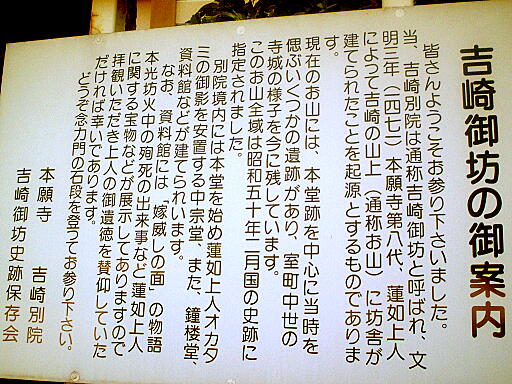 吉崎御坊の御案内
皆さんようこそお参り下さいました。
当、吉崎別院は通称吉崎御坊と呼ばれ、文
明三年(一四七一)本願寺第八代、蓮如上人
によって吉崎の山上(通称お山)に坊舎が
建てられたことを起源とするものでありま
す。
現在のお山には、本堂跡を中心に当時を
偲ぶいくつかの遺跡があり、室町中世の
寺城の様子を今に残しています。
このお山全域は昭和五十年二月国の史跡に
指定されました。
別院境内には本堂を始め蓮如上人オカタ
三の御影を安置する中宗堂、また、鐘楼堂、
資料館などが建てられいます。
なお、資料館には「嫁威しの面」の物語
本光坊火中の殉死の出来事など蓮如上人
に関する宝物などが展示してありますので
拝観いただき上人の御遺徳を賛仰していた
だければ幸いであります。
どうぞ念力門の石段を登ってお参り下さい。
本願寺 吉崎別院
吉崎御坊史跡保存会